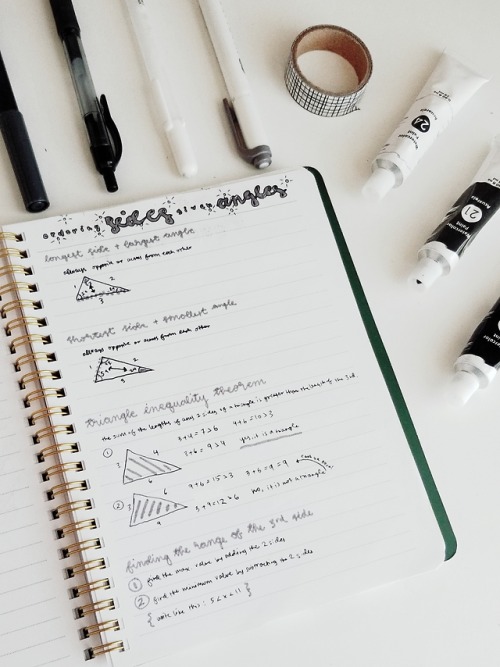 ordering sides given angles
longest side + largest angle
always opposite or across from each other
1 2
3
shortest side + smallest angle
always opposite or across from each other
1 2
3
triangle inequality theorem
the sum of the lengths of any 2 sides of a triangle is greater than the length of the 3rd.
① 3+4=7>6 4+6=10>3
3 4 3+6=9>4 yes, it is a triangle
6
② 6 9+6=15>3 3+6=9=9
3 3+9=12>6 no, it is not a triangle
9
finding the range of the 3rd side
① find the max value by adding the 2 sides
② find the minimum value by subtracting the 2 sides
{ write like this: 5<x<11 }
24
Watercolor
Paint
21
Watercolor